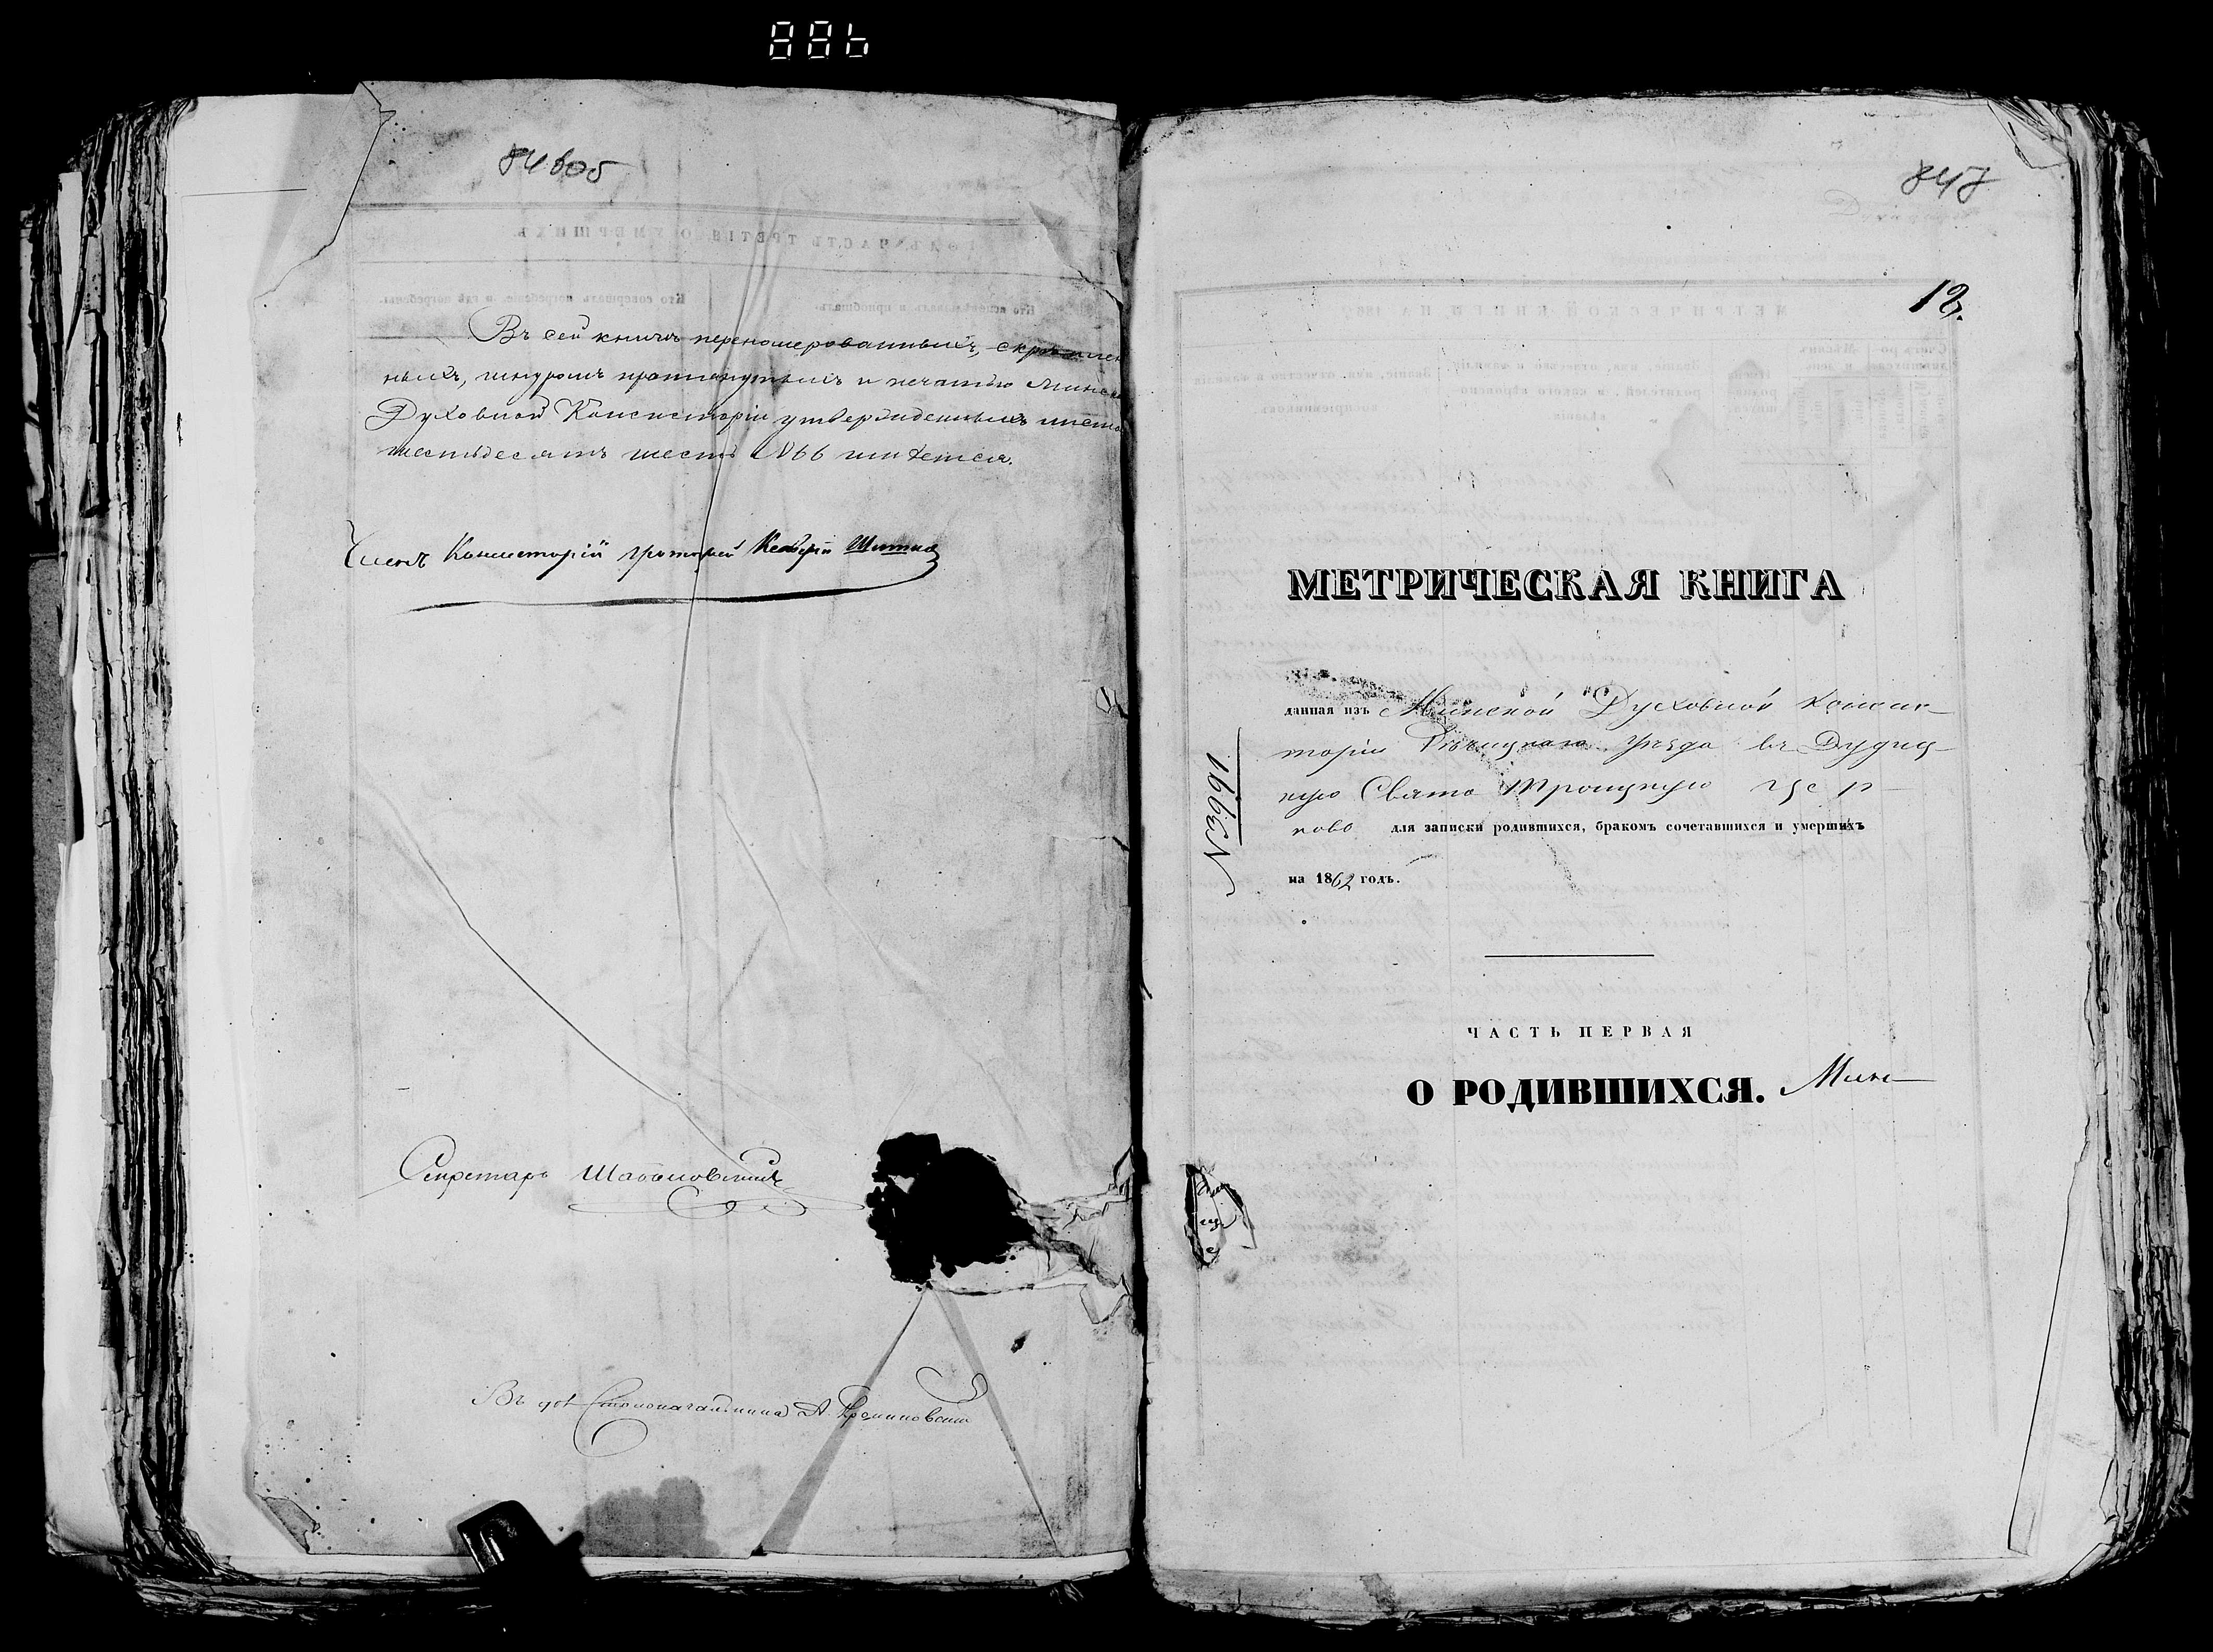 84боб
Въ сей книгѣ перенумерованныхъ, скрѣплен
ныхъ, шнуромъ протянутыхъ и печатью Минско
Духовной Консисторіи утвержденныхъ листо
шестьдесятъ шесть №66 имѣется.
Членъ Консисторіи
Секретарь
Столоначальника А.
847
12.
МЕТРИЧЕСКАЯ КНИГА
данная изъ Минской Духовной Консис-
торіи Рѣчицкаго уѣзда въ Дудиц-
кую Свято Троицкую цер-
ковь для записки родившихся, бракомъ сочетавшихся и умершихъ
на 1862 годъ.
ЧАСТЬ ПЕРВАЯ
О РОДИВШИХСЯ. Минс